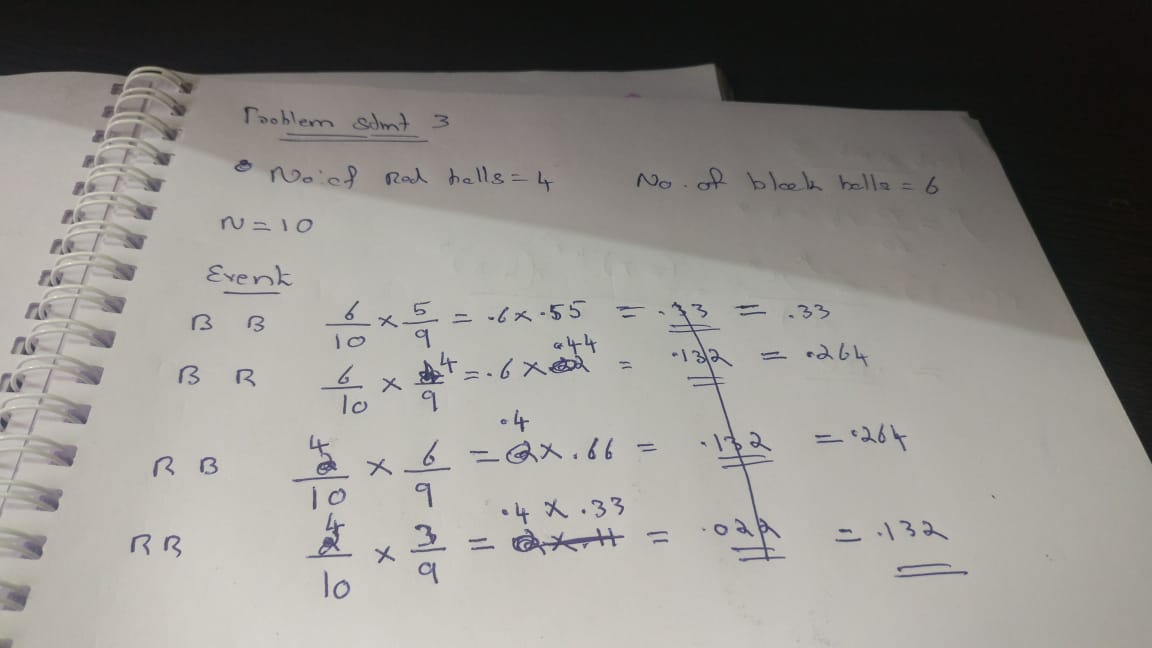 Problem stmt 3
No: of Red balls = 4 No. of black balls = 6
N = 10
Event
B B 6/10 × 5/9 = .6 × .55 = .33 = .33
B R 6/10 × 4/9 = .6 × .44 = .132 = .264
R B 4/10 × 6/9 = .4 × .66 = .132 = .264
R R 4/10 × 3/9 = .4 × .33 = .022 = .132